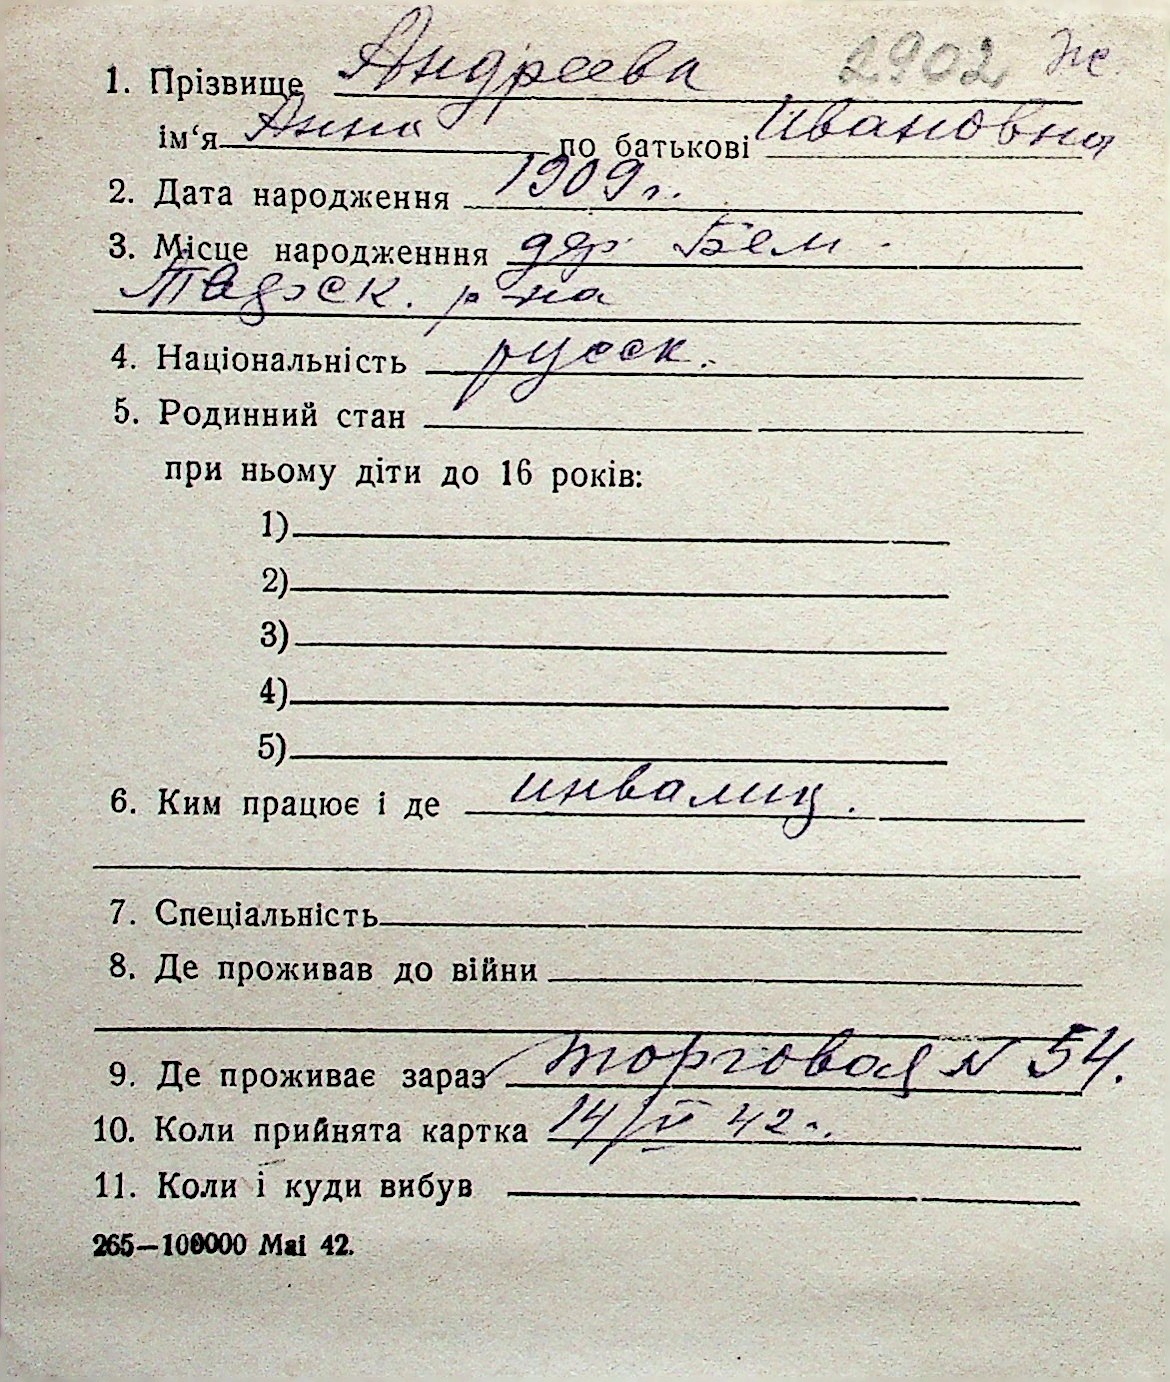 2902 Ж.
1. Прізвище Андреева
ім‘я Анна по батькові Ивановна
2. Дата народження 1909 г.
3. Місце народженння дер. Бем.
р-на
4. Національність русск.
5. Родинний стан
при ньому діти до 16 років:
1)
2)
3)
4)
5)
6. Ким працює і де инвалид.
7. Спеціальність
8. Де проживав до війни
9. Де проживає зараз Торговая № 54.
10. Коли прийнята картка 14/V 42 г.
11. Коли і куди вибув
265—100000 Mai 42.